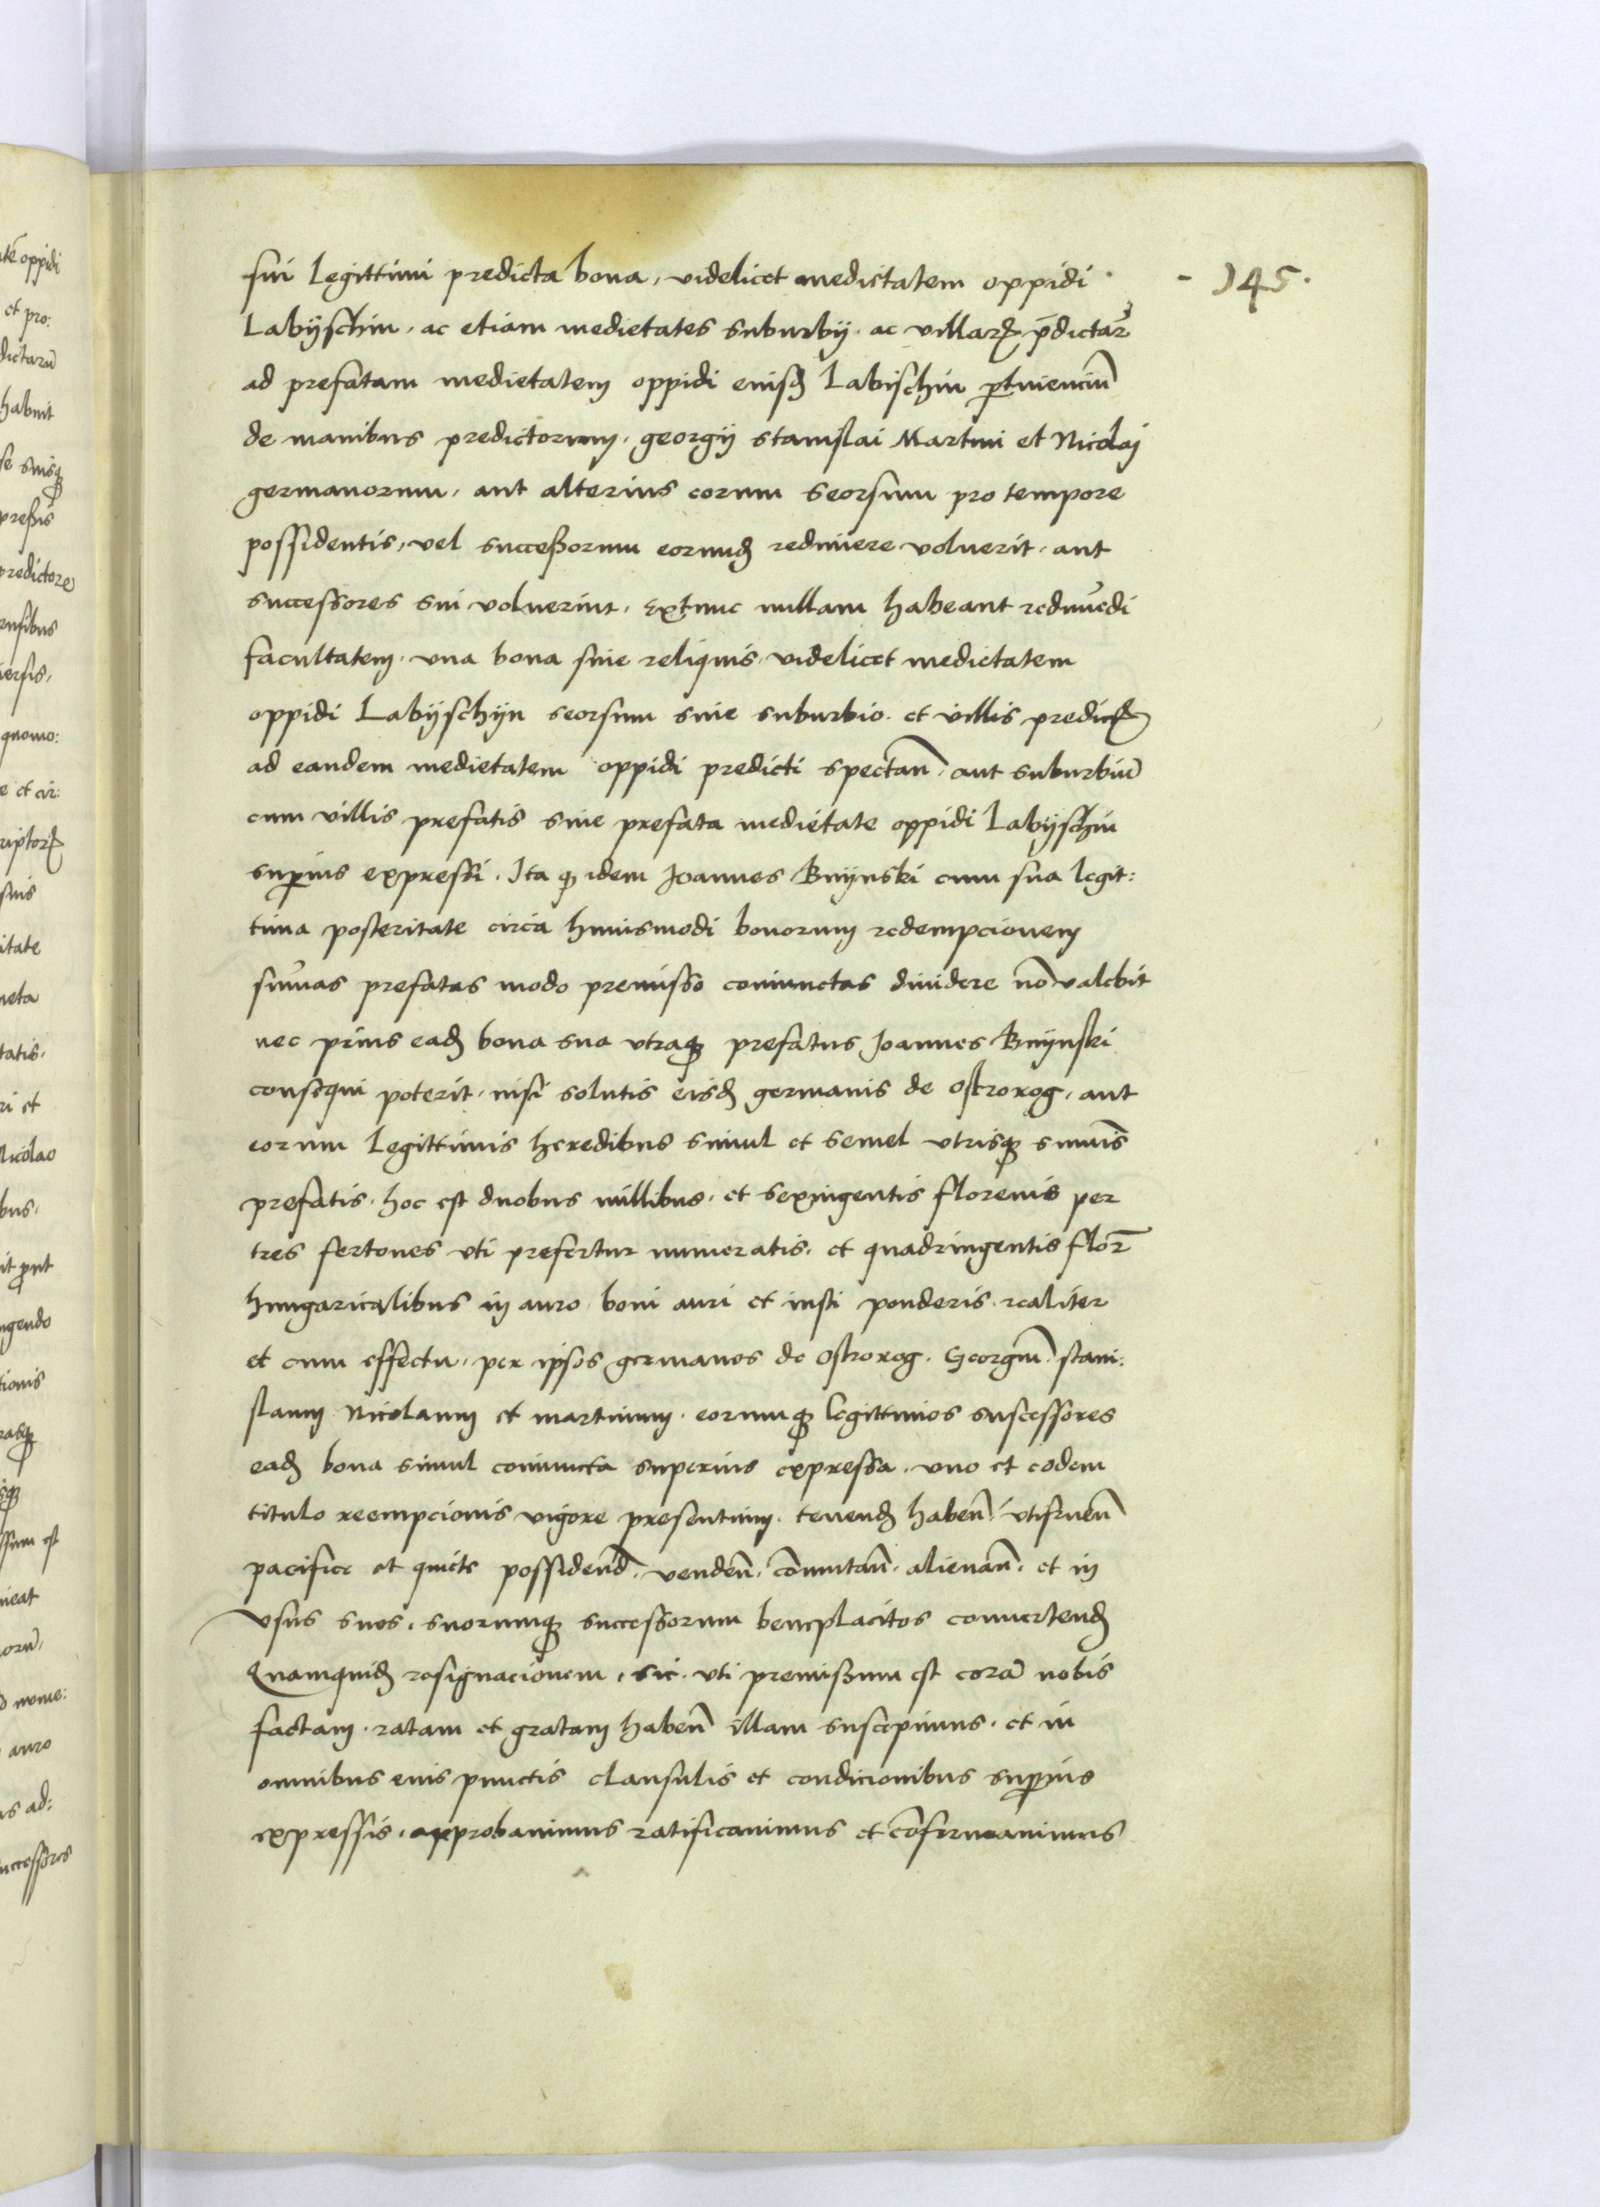 sui legittimi predicta bona, videlicet medietatem oppidi · - 145 ·
Labijschin, ac etiam medietates suburbij · ac villaꝝ p̄dictaꝝ
ad prefatam medietatem oppidi eiusđ Labischin ꝑtineinciū
de manibus predictorum, georgij stanislai Martini et Nicolaj
germanorum, aut alterius eorum seorsum pro tempore
possidentis, vel successorum eorumđ redimere voluerit, aut
successores sui voluerint, Extunc nullam habeant redimēdi
facultatem · vna bona sine reliquis, videlicet medietatem
oppidi Labijschijn seorsum sine suburbio · et villis predictꝭ
ad eandem medietatem oppidi predicti spectan̄, aut suburbiū
cum villis prefatis sine prefata medietate oppidi Labijschin
suꝑius expressi · Ita ꝙ idem Joannes Bnijnski cum sua legit:
tima posteritate circa huiusmodi bonorum redempcionem
sum̄as prefatas modo premisso coniunctas diuidere nō valebit
nec prius eađ bona sua vtraqꝫ prefatus Joannes Bnijnski
consequi poterit, nisi solutis eisđ germanis de Ostrorog, aut
eorum legittimis heredibus simul et semel vtrisqꝫ sum̄is
prefatis · hoc est duobus millibus · et sexingentis florenis per
tres fertones vti prefertur numeratis · et quadringentis flor̄
hungaricalibus in auro boni auri et iusti ponderis realiter
et cum effectu, per ipsos germanos de Ostrorog · Georgiū stani:
slaum Nicolaum et martinum · eorumqꝫ legittimos successores
eađ bona simul coniuncta superius expressa · vno et eodem
titulo reempcionis vigore presentium · tenenđ haben̄ vtifruen̄
pacifice et quiete possidend̄, venden̄, cōmutan̄ · alienan̄ · et in
vsus suos · suorumqꝫ successorum beneplacitos conuertenđ
Quamquiđ resignacionem, sic · vti premissum est corā nobis
factam · ratam et gratam haben̄ illam suscepimus · et in
omnibus eius punctis clausulis et condicionibus suꝑius
expressis · approbauimus ratificauimus et cōfirmauimus